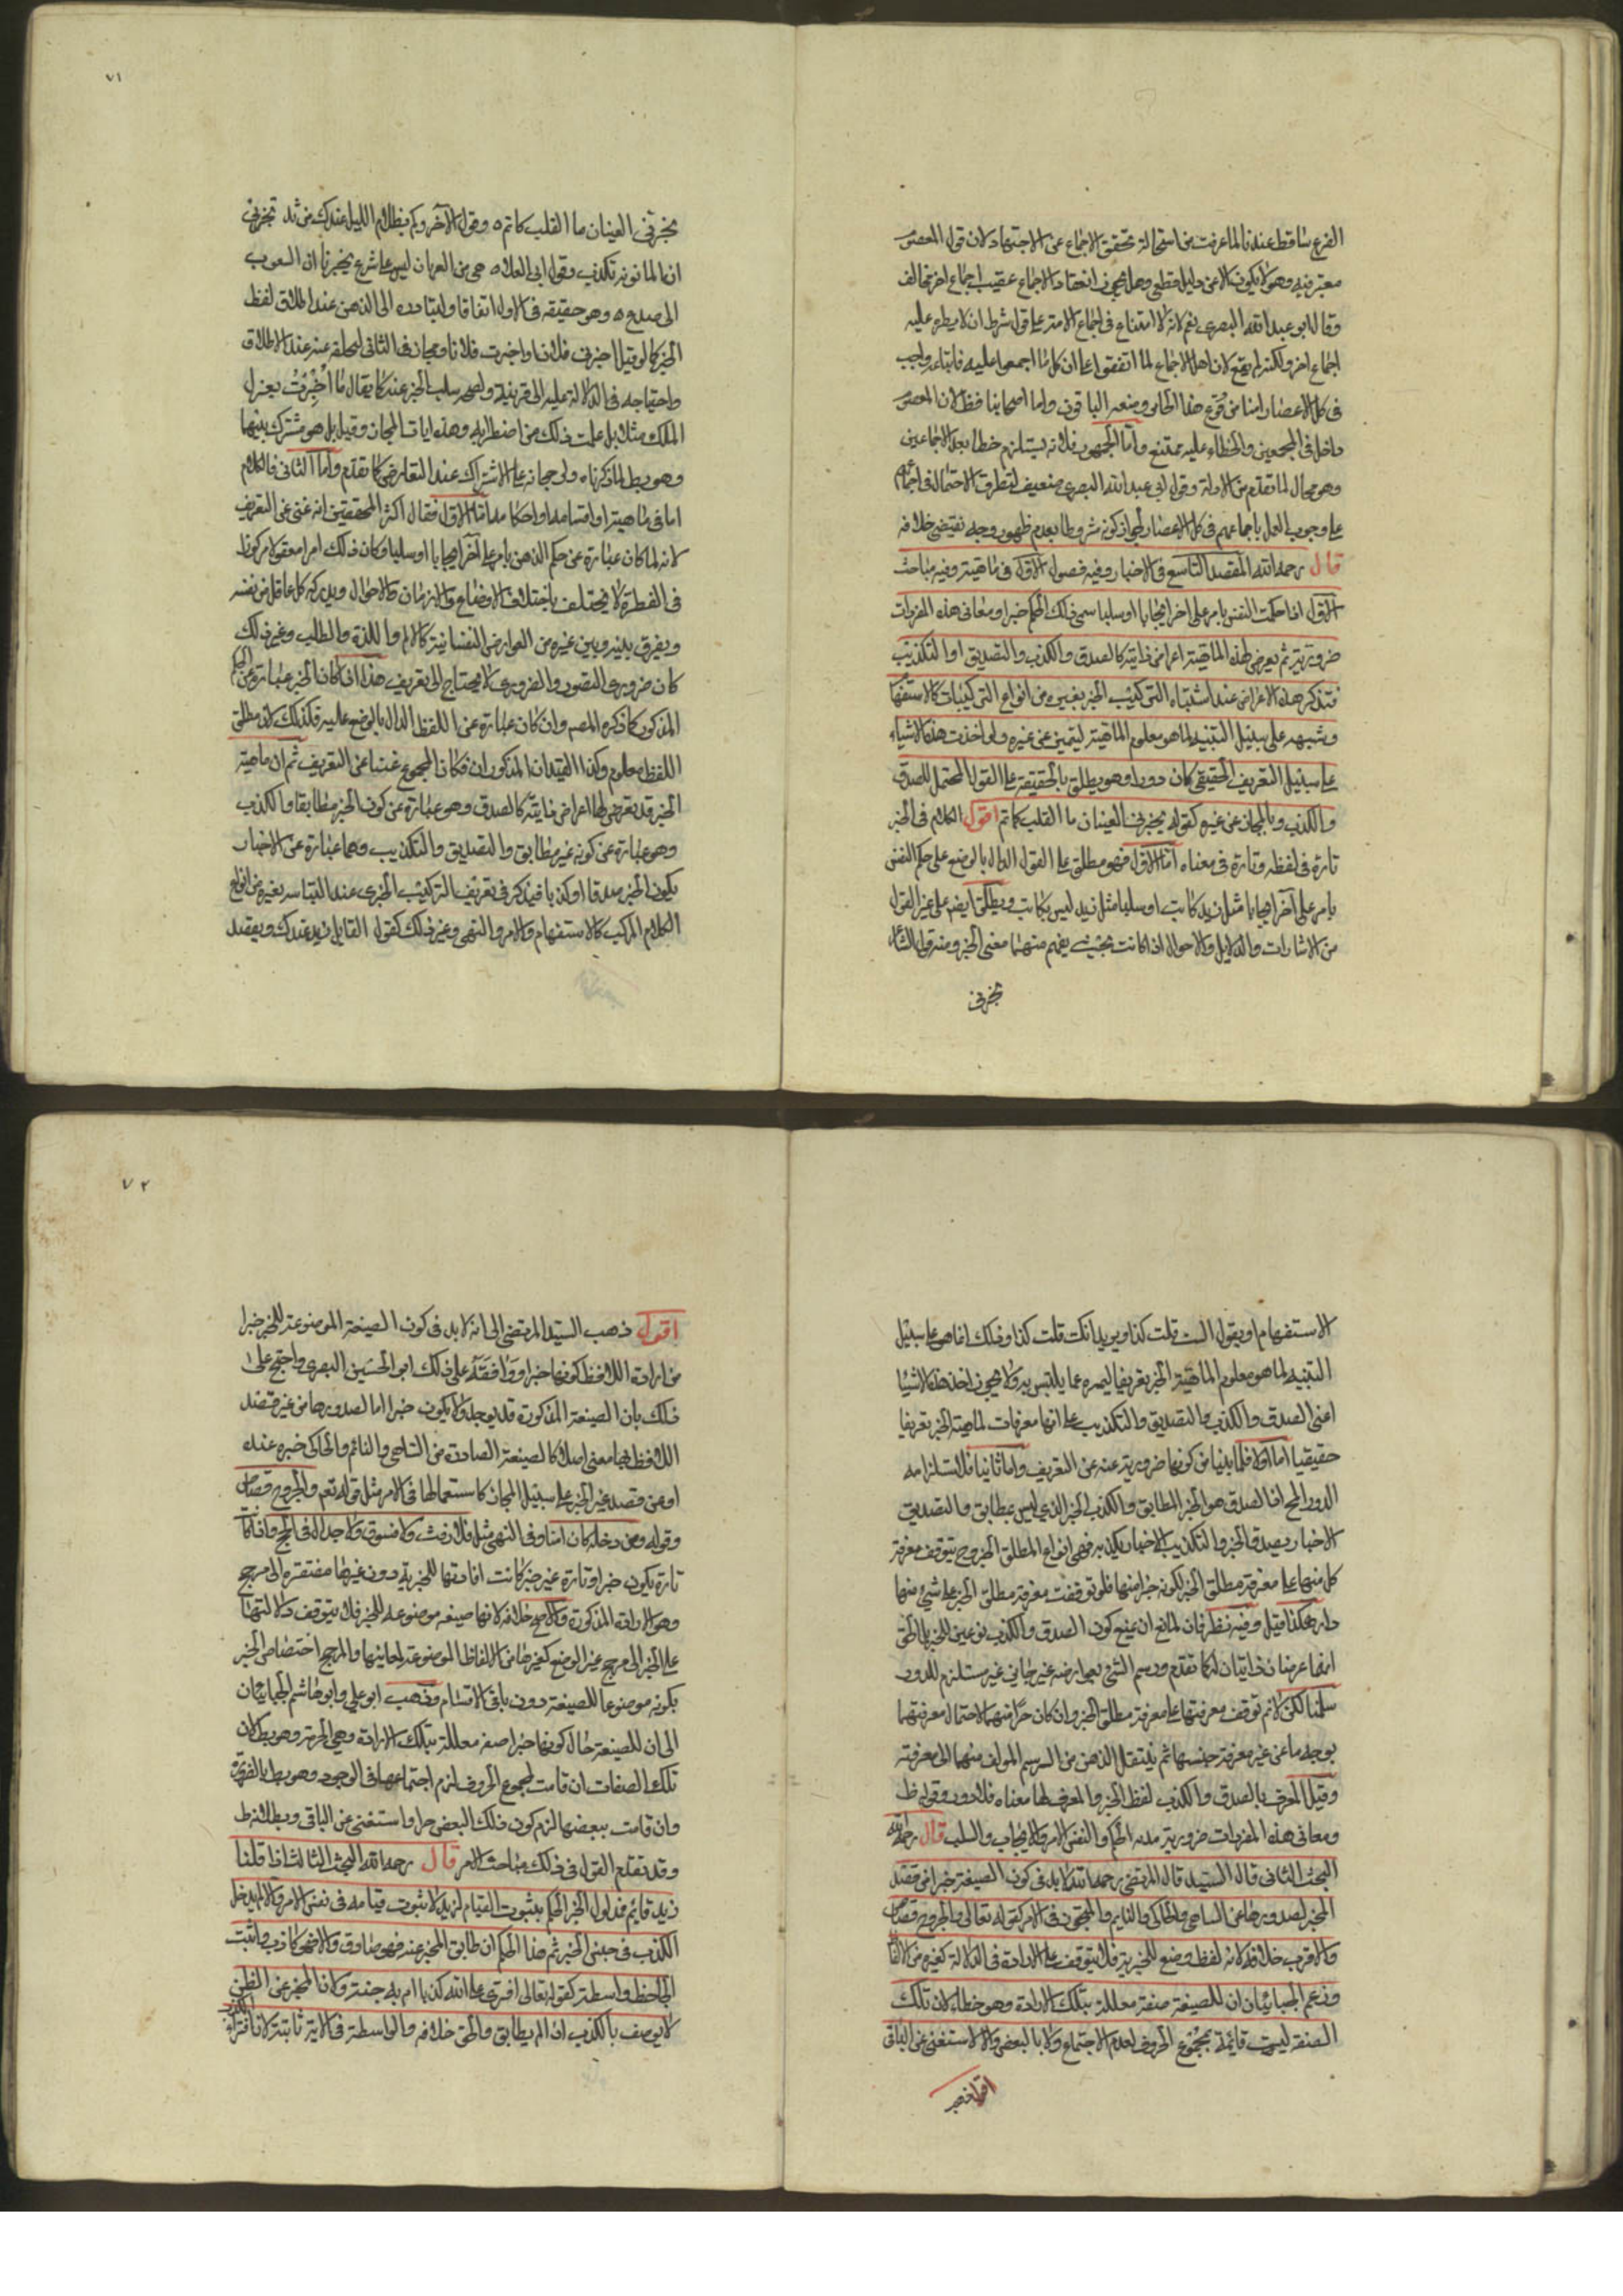 الفرع ساقط عندنا لما عرفت من استحالة تحقق الاجماع عن الاجتهاد لان قول المعصوم
معتبر فيه وهو لا يكون الا عن دليل قطعي وهل يجوز انعقاد الاجماع عقيب اجماع اخر مخالف
وقال ابو عبد الله البصري نعم لانه لا امتناع في اجماع الامة على قول شرط ان لا يطرء عليه
اجماع اخر ولكنه لم يقع لان اهل الاجماع لما اتفقوا على ان كل ما اجمعوا عليه فاتباعه واجب
في كل الاعصار امنا من وقوع هذا الجائز ومنعه الباقون واما اصحابنا فظ لان المعصوم
داخل في المجمعين والخطاء عليه ممتنع واما الجمهور فلانه يستلزم خطا بعد الاجماعين
وهو محال لما تقدم من الادلة وقول ابي عبد الله البصري ضعيف لتطرق الاحتمال في اجماعهم
على وجوب العمل باجماعهم في كل الاعصار لجواز كونه مشروطا بعدم ظهور وجه يقتضي خلافه
قال رحمه الله المقصد التاسع في الاخبار وفيه فصول الاول في ماهيته وفيه مباحث
الاول اذا حكمت النفس بامر على اخر ايجابا او سلبا سمي ذلك الحكم خبرا ومعاني هذه المفردات
ضرورية ثم يعرض لهذه الماهية اعراض ذاتية كالصدق والكذب والتصديق او التكذيب
فتذكر هذه الاعراض عند اشتباه التركيب الخبر بغيره من انواع التركيبات كالاستفها
وشبهه على سبيل التنبيه لما هو معلوم الماهية ليتميز عن غيره ولو اخذت هذه الاشياء
على سبيل التعريف الحقيقي كان دورا وهو يطلق بالحقيقة على القول المحتمل للصدق
والكذب وبالمجاز عن غيره كقوله يخبرني العينان ما القلب كاتم اقول الكلام في الخبر
تارة في لفظه وتارة في معناه اما الاول فهو مطلق على القول الدال بالوضع على حكم النفس
بامر على آخر ايجابا مثل زيد كاتب او سلبا مثل زيد ليس بكاتب ويطلق ايضم على غير القول
من الاشارات والدلايل والاحوال اذا كانت بحيث يفهم منها معنى الخبر ومنه قول الشاء
تخبرني
٧١
يخبرني العينان ما القلب كاتم ٥ وقول الآخر وكم لظلام الليل عندك من ثد تخبرني
ان المانونه تكذب وقول ابي العلا ٥ من الغربان ليس على شرع يخبرنا ان الشعوب
الى صدع ٥ وهو حقيقة في الاول اتفاقا ولتبادره الى الذهن عند اطلاق لفظ
الخبر كما لو قيل اخبرني فلان او اخبرت فلانا ومجاز في الثاني لتخلفه عنه عند الاطلاق
واحتياجه في الدلالة عليه الى قرينة ولصحة سلب الخبر عنه كما يقال ما اُخْبِرْتُ بعزل
الملك مثلا بل علمت ذلك من اضطرابه وهذه ايات المجاز وقيل بل هو مشترك بينهما
وهو بط لما ذكرناه ولرجحانه على الاشتراك عند التعارض كما تقدم واما الثاني فالكلام
اما في ماهيته او اقسامه او احكامه اما الاول فقال اكثر المحققين انه غني عن التعريف
لانه لما كان عبارة عن حكم الذهن بامر على آخر ايجابا او سلبا وكان ذلك امرا معقولا مركوزا
في الفطرة لا يختلف باختلاف الاوضاع والازمان والاحوال ويدركه كل عاقل من نفسه
ويفرق بينه وبين غيره من العوارض النفسانية كالالم واللذة والطلب وغير ذلك
كان ضروري التصور والضروري لا يحتاج الى تعريف هذا اذا كان الخبر عبارة عن الحكم
المذكور كما ذكره المصم وان كان عبارة عن اللفظ الدال بالوضع عليه فكذلك لان مطلق
اللفظ معلوم وكذا القيدان المذكوران فكان المجموع غنيا عن التعريف ثم ان ماهية
الخبر قد يعرض لها اعراض ذاتية كالصدق وهو عبارة عن كون الخبر مطابقا والكذب
وهو عبارة عن كونه غير مطابق والتصديق والتكذيب وهما عبارة عن الاخبار
بكون الخبر صدقا او كذبا فيذكر في تعريف التركيب الخبري عند التباسه بغيره من انواع
الكلام المركب كالاستفهام والامر والنهي وغير ذلك كقول القايل زيد عندك ويقصد
الاستفهام او يقول الست قلت كذا ويريد انك قلت كذا وذلك انما هو على سبيل
التنبيه لما هو معلوم الماهية الخبر تعريفا ليميزه عما يلتبس به ولا يجوز اخذ هذه الاشيا
اعني الصدق والكذب والتصديق والتكذيب على انها معرفات لماهية الخبر تعريفا
حقيقيا اما اولا فلما بينا من كونها ضرورية غنية عن التعريف واما ثانيا فلاستلزامه
الدور المح اذ الصدق هو الخبر المطابق والكذب الخبر الذي ليس بمطابق والتصديق
الاخبار بصدق الخبر والتكذيب الاخبار بكذبه فهي انواع المطلق الخبر وح يتوقف معرفة
كل منها على معرفة مطلق الخبر لكونه جزا منها فلو توقفت معرفة مطلق الخبر على شيئ منها
دار هكذا قيل وفيه نظر فان لمانع ان يمنع كون الصدق والكذب نوعين للخبر بل الحق
انهما عرضان ذاتيان له كما تقدم ورسم الشئ بعوارضه غير جايز غير مستلزم للدور
سلمنا لكن لا نم توقف معرفتها على معرفة مطلق الخبر وان كان جزا منهما لاحتمال معرفتهما
بوجه ما عن غير معرفة جنسها ثم ينتقل الذهن من الرسم المولف منهما الى معرفته
وقيل المعرف بالصدق والكذب لفظ الخبر والمعرف لها معناه فلا دور وقوله ظ
ومعاني هذه المفردات ضرورية الحكم والنفس الامر والايجاب والسلب قال رحمه الله
البحث الثاني قال السيد قال المرتضى رحمه الله لا بد في كون الصيغة خبرا من قصد
المخبر لصدورها من الساهي والحاكي والنايم والتجوز في الامر كقوله تعالى والجروح قصاص
والاقرب خلافه لانه لفظ وضع للخبرية فلا يتوقف على الارادة في الدلالة كغيره من الالفا
وزعم الجبائيان ان للصيغة صفة معللة بتلك الارادة وهو خطاء لان تلك
الصفة ليست قائمة بمجموع الحروف لعدم الاجتماع ولا بالبعض والا لاستغنى عن الباقي
٧٢
اقول ذهب السيد المرتضى الى انه لا بد في كون الصيغة الموضوعة للخبر خبرا
من ارادة اللافظ كونها خبرا ووافقه على ذلك ابو الحسين البصري واحتج على
ذلك بان الصيغة المذكورة قد يوجد ولا يكون خبرا اما لصدورها من غير قصد
اللافظ بها معنى اصلا كالصيغة الصادرة من الساهي والنائم والحاكي خبره عنده
او عن قصد غير الخبر على سبيل المجاز كاستعمالها في الامر مثل قوله تعم والجروح قصاص
وقوله ومن دخله كان امنا وفي النهي مثل فلا رفث ولا فسوق ولا جدال في الحج واذا كا
تارة يكون خبرا وتارة غير خبر كانت افادتها للخبرية دون غيرها مفتقرة الى مرجح
وهو الارادة المذكورة والاصح خلافه لانها صيغة موضوعه للخبر فلا يتوقف دلالتها
على الخبر الى مرجح غير الوضع كغيرها من الالفاظ الموضوعة لمعانيها والمرجح اختصاص الخبر
بكونه موضوعا للصيغة دون باقي الاقسام وذهب ابو علي وابو هاشم الجبائيان
الى ان للصيغة حال كونها خبرا صفة معللة بتلك الارادة وهي وهو بط لان
تلك الصفات ان قامت لمجموع الحروف لزم اجتماعها في الوجود وهو بط بالضرورة
وان قامت ببعضها لزم كون ذلك البعض خبرا واستغنى عن الباقي وبطلانه ظ
وقد تقدم القول في ذلك مباحث الامر قال رحمه الله البحث الثالث اذا قلنا
زيد قايم فمدلول الخبر الحكم بثبوت القيام لزيد لا ثبوت قيامه في نفس الامر والا لم يدخل
الكذب في جنس الخبر ثم هذا الحكم ان طابق المخبر عنه فهو صادق والا فهو كاذب واثبت
الجاحظ واسطة كقوله تعالى افترى على الله كذبا ام به جنة ولانا المخبر عن الظن
لا يوصف بالكذب اذا لم يطابق والحق خلافه والواسطة في الاية ثابتة لان افتراء الكذب